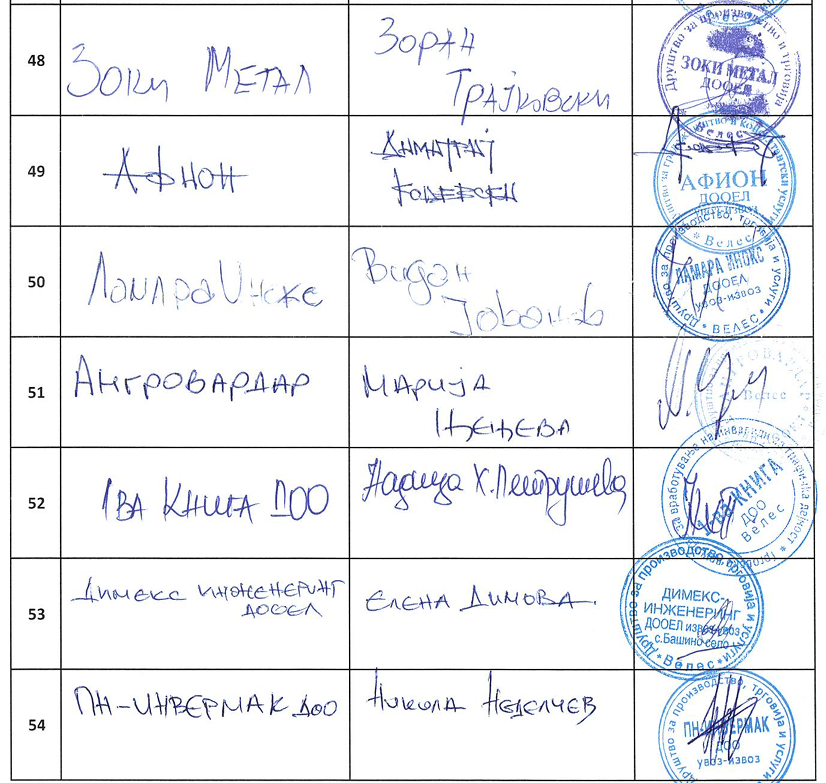 48
Зоки Метал
Зоран
Трајковски
Друштво за производство и трговија
ЗОКИ МЕТАЛ
ДООЕЛ
Велес
49
Афион
АФИОН
ДООЕЛ
Велес
50
Видан
Јованов
Друштво за производство, трговија и услуги
ЛАМАРА ИНОКС
ДООЕЛ
увоз-извоз
ВЕЛЕС
51
Ангровардар
Марија
Велес
52
1ва Книга ДОО
Надица Х. Петрушева
1 ва КНИГА
ДОО
Велес
53
Димекс инженеринг
дооел
Елена Димова
Друштво за производство трговија и услуги
ДИМЕКС-
ИНЖЕНЕРИНГ
ДООЕЛ извоз-увоз
с.Башино село
Велес
54
ПН-Инвермак доо
Никола Неделчев
Друштво за производство, трговија и услуги
ПН-ИНВЕРМАК
ДОО
увоз-извоз